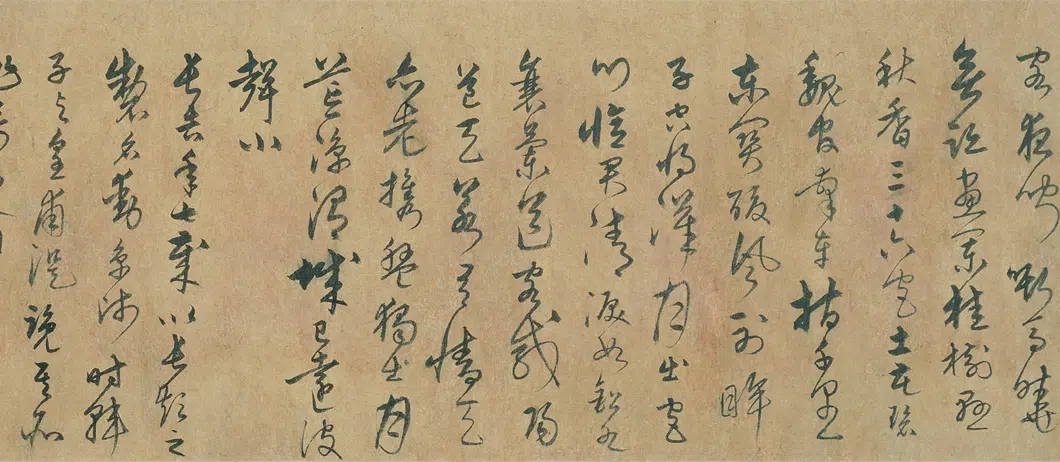 客夜聞嘶馬曉
無跡畫闌桂樹懸
秋香三十六宮土花碧
魏官牽車指千里
東關酸風射眸
子空將漢月出宮
門憶君清淚如鉛水
衰蘭送客咸陽
道天若有情天
亦老攜盤獨出月
荒涼渭城已遠波
聲小
長吉年七歲以長短之
製名動京師時韓
子與皇甫湜覽其所